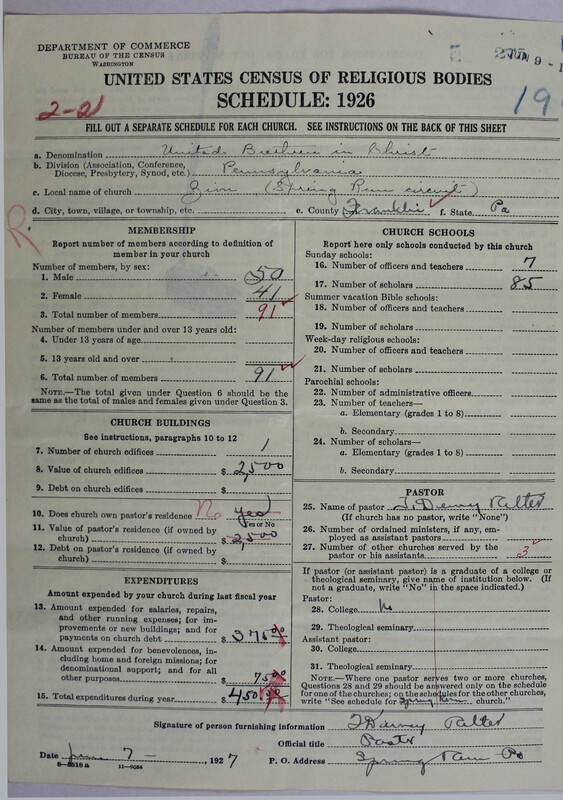 DEPARTMENT OF COMMERCE
BUREAU OF THE CENSUS
WASHINGTON
UNITED STATES CENSUS OF RELIGIOUS BODIES
SCHEDULE: 1926
2-21
FILL OUT A SEPARATE SCHEDULE FOR EACH CHURCH. SEE INSTRUCTIONS ON THE BACK OF THIS SHEET
a. Denomination United Brethren in Christ
b. Division (Association, Conference, Diocese, Presbytery, Synod, etc.) Pennsylvania
c. Local name of church Zion (Spring Run circuit)
d. City, town, village, or township, etc. e. County Franklin f. State Pa
R
MEMBERSHIP
Report number of members according to definition of
member in your church
Number of members, by sex:
1. Male 50
2. Female 41
3. Total number of members 91
Number of members under and over 13 years old:
4. Under 13 years of age
5. 13 years old and over
6. Total number of members 91
NOTE.—The total given under Question 6 should be
same as the total of males and females given under Question 3.
CHURCH BUILDINGS
See instructions, paragraphs 10 to 12
7. Number of church edifices 1
8. Value of church edifices $ 2,500
9. Debt on church edifices $
10. Does church own pastor's residence? No yes
Yes or No
11. Value of pastor's residence (if owned by
church) $ 2,500
12. Debt on pastor's residence (if owned by
church) $
EXPENDITURES
Amount expended by your church during last fiscal year
13. Amount expended for salaries, repairs,
and other running expenses; for im-
provements or new buildings; and for
payments on church debt $ 375 00
14. Amount expended for benevolences, in-
cluding home and foreign missions; for
denominational support; and for all
other purposes $ 75 00
15. Total expenditures during year $ 450 00
CHURCH SCHOOLS
Report here only schools conducted by this church
Sunday schools:
16. Number of officers and teachers 7
17. Number of scholars 85
Summer vacation Bible schools:
18. Number of officers and teachers
19. Number of scholars
Week-day religious schools:
20. Number of officers and teachers
21. Number of scholars
Parochial schools:
22. Number of administrative officers
23. Number of teachers—
a. Elementary (grades 1 to 8)
b. Secondary
24. Number of scholars—
a. Elementary (grades 1 to 8)
b. Secondary
PASTOR
25. Name of pastor
(If church has no pastor, write "None")
26. Number of ordained ministers, if any, em-
ployed as assistant pastors
27. Number of other churches served by the
pastor or his assistants 3
If pastor (or assistant pastor) is a graduate of a college or
theological seminary, give name of institution below. (If
not a graduate, write "No" in the space indicated.)
Pastor:
28. College No
29. Theological seminary
Assistant pastor:
30. College
31. Theological seminary
NOTE.—Where one pastor serves two or more churches,
Questions 28 and 29 should be answered only on the schedule
for one of the churches; on the schedules for the other churches,
write "See schedule for Spring Run church."
Signature of person furnishing information
Official title Pastor
Date June 7 — , 1927 P. O. Address Spring Run Pa
11—9084